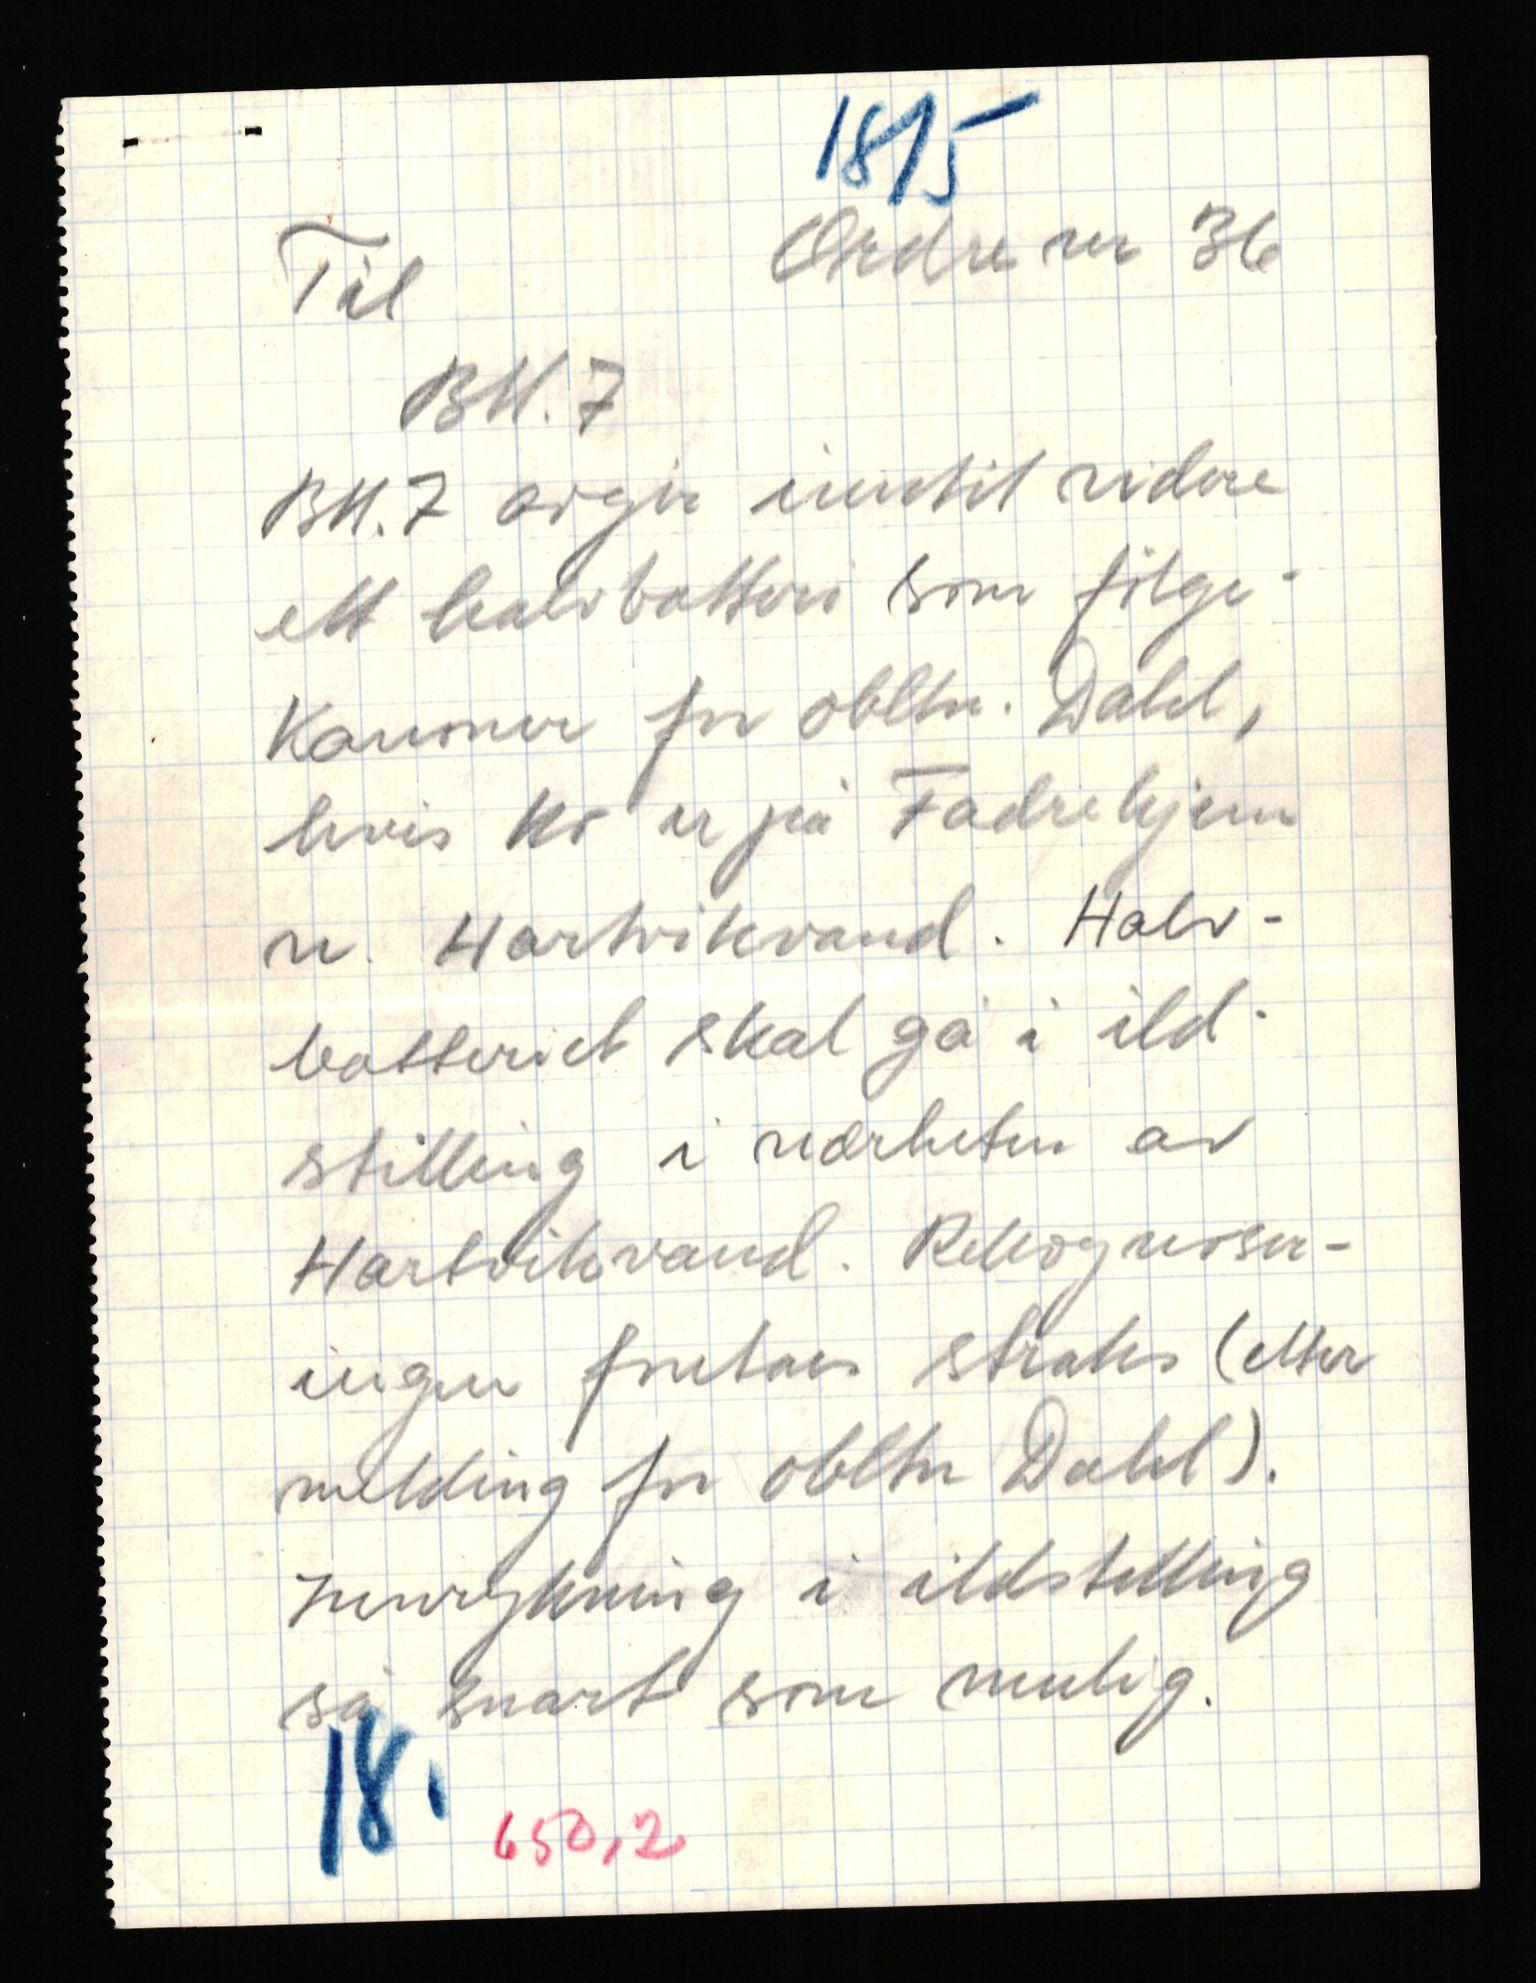 18/5
Ordre nr 36
Til
BM. 7
BM. 7 avgir inntil videre
ett halvbatteri som følge-
kanoner for obltn. Dahl,
hvis ko er på Fadrehjem
n. Hartvikvand. Halv-
batteriet skal gå i ild-
stilling i nærheten av
Hartvikvand. Rekognoser-
ingen foretaes straks (etter
melding for obltn Dahl).
Innrykning i ildstilling
så snart som mulig.
18.
650,2